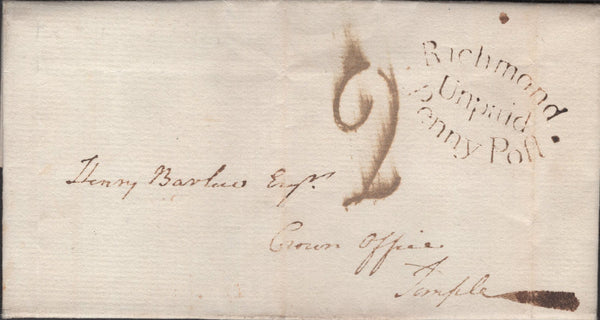 Richmond
Unpaid
Penny Post
2
Henry Barlow Esqr.
Crown Office
Temple